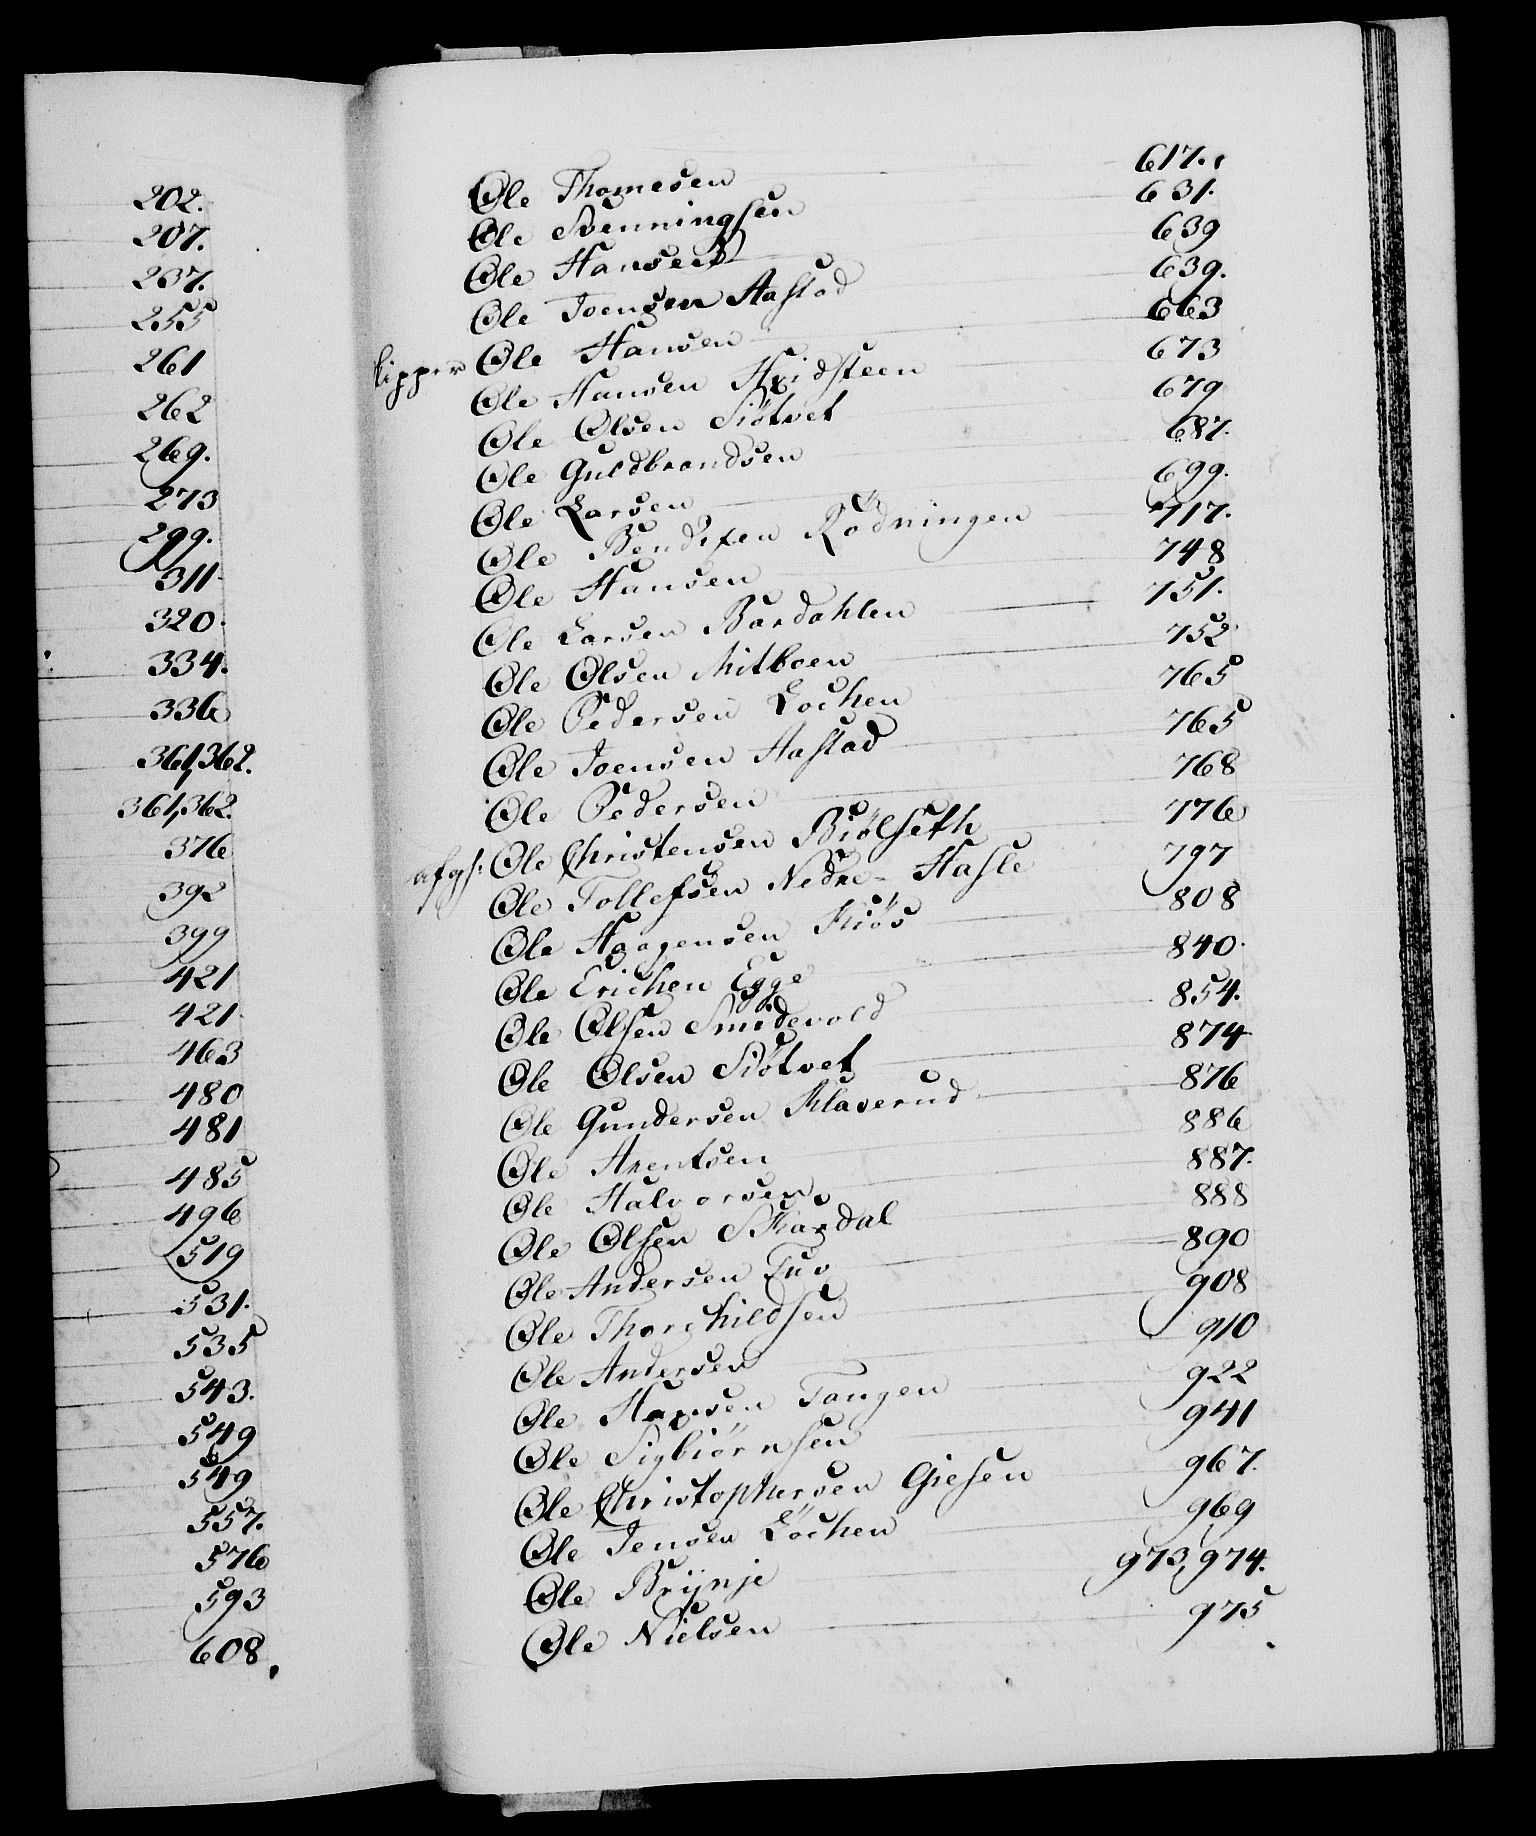 202.
207.
237.
255
261
262
269.
273
299.
311
320.
334.
336
361,362.
361,362.
376
392
399
421
421
463
480
481
485
496
519
531.
535
543.
549
549
557.
576
593
608.
Ole Thomesen 617.
Ole Svenningsen 631.
Ole Hansen 639
Ole Joensen Aastad 639.
Ole Hansen 663
Ole Hansen Hvidsteen 673
Ole Olsen Siøtvet 679
Ole Guldbrandsen 687.
Ole Larsen 699.
Ole Bendixen Rødningen 717.
Ole Hansen 748
Ole Larsen Bardahlen 751.
Ole Olsen Mitboen 752
Ole Pedersen Lochen 765
Ole Joensen Aastad 765
Ole Pedersen 768
afgs: Ole Christensen Biølseth 776
Ole Tollefsen Nedre-Hasle 797
Ole Haagensen Kiøs 808
Ole Erichsen Egge 840.
Ole Olsen Smidevold 854.
Ole Olsen Siøtvet 874
Ole Gundersen Klaverud 876
Ole Arentsen 886
Ole Halvorsen 887.
Ole Olsen Skardal 888
Ole Andersen Tuv 890
Ole Thorchildsen 908
Ole Andersen 910
Ole Hansen Tangen 922
Ole Sigbiørnsen 941
Ole Christophersen Giesen 967.
Ole Jensen Løchen 969
Ole Brÿnje 973,974.
Ole Nielsen 975